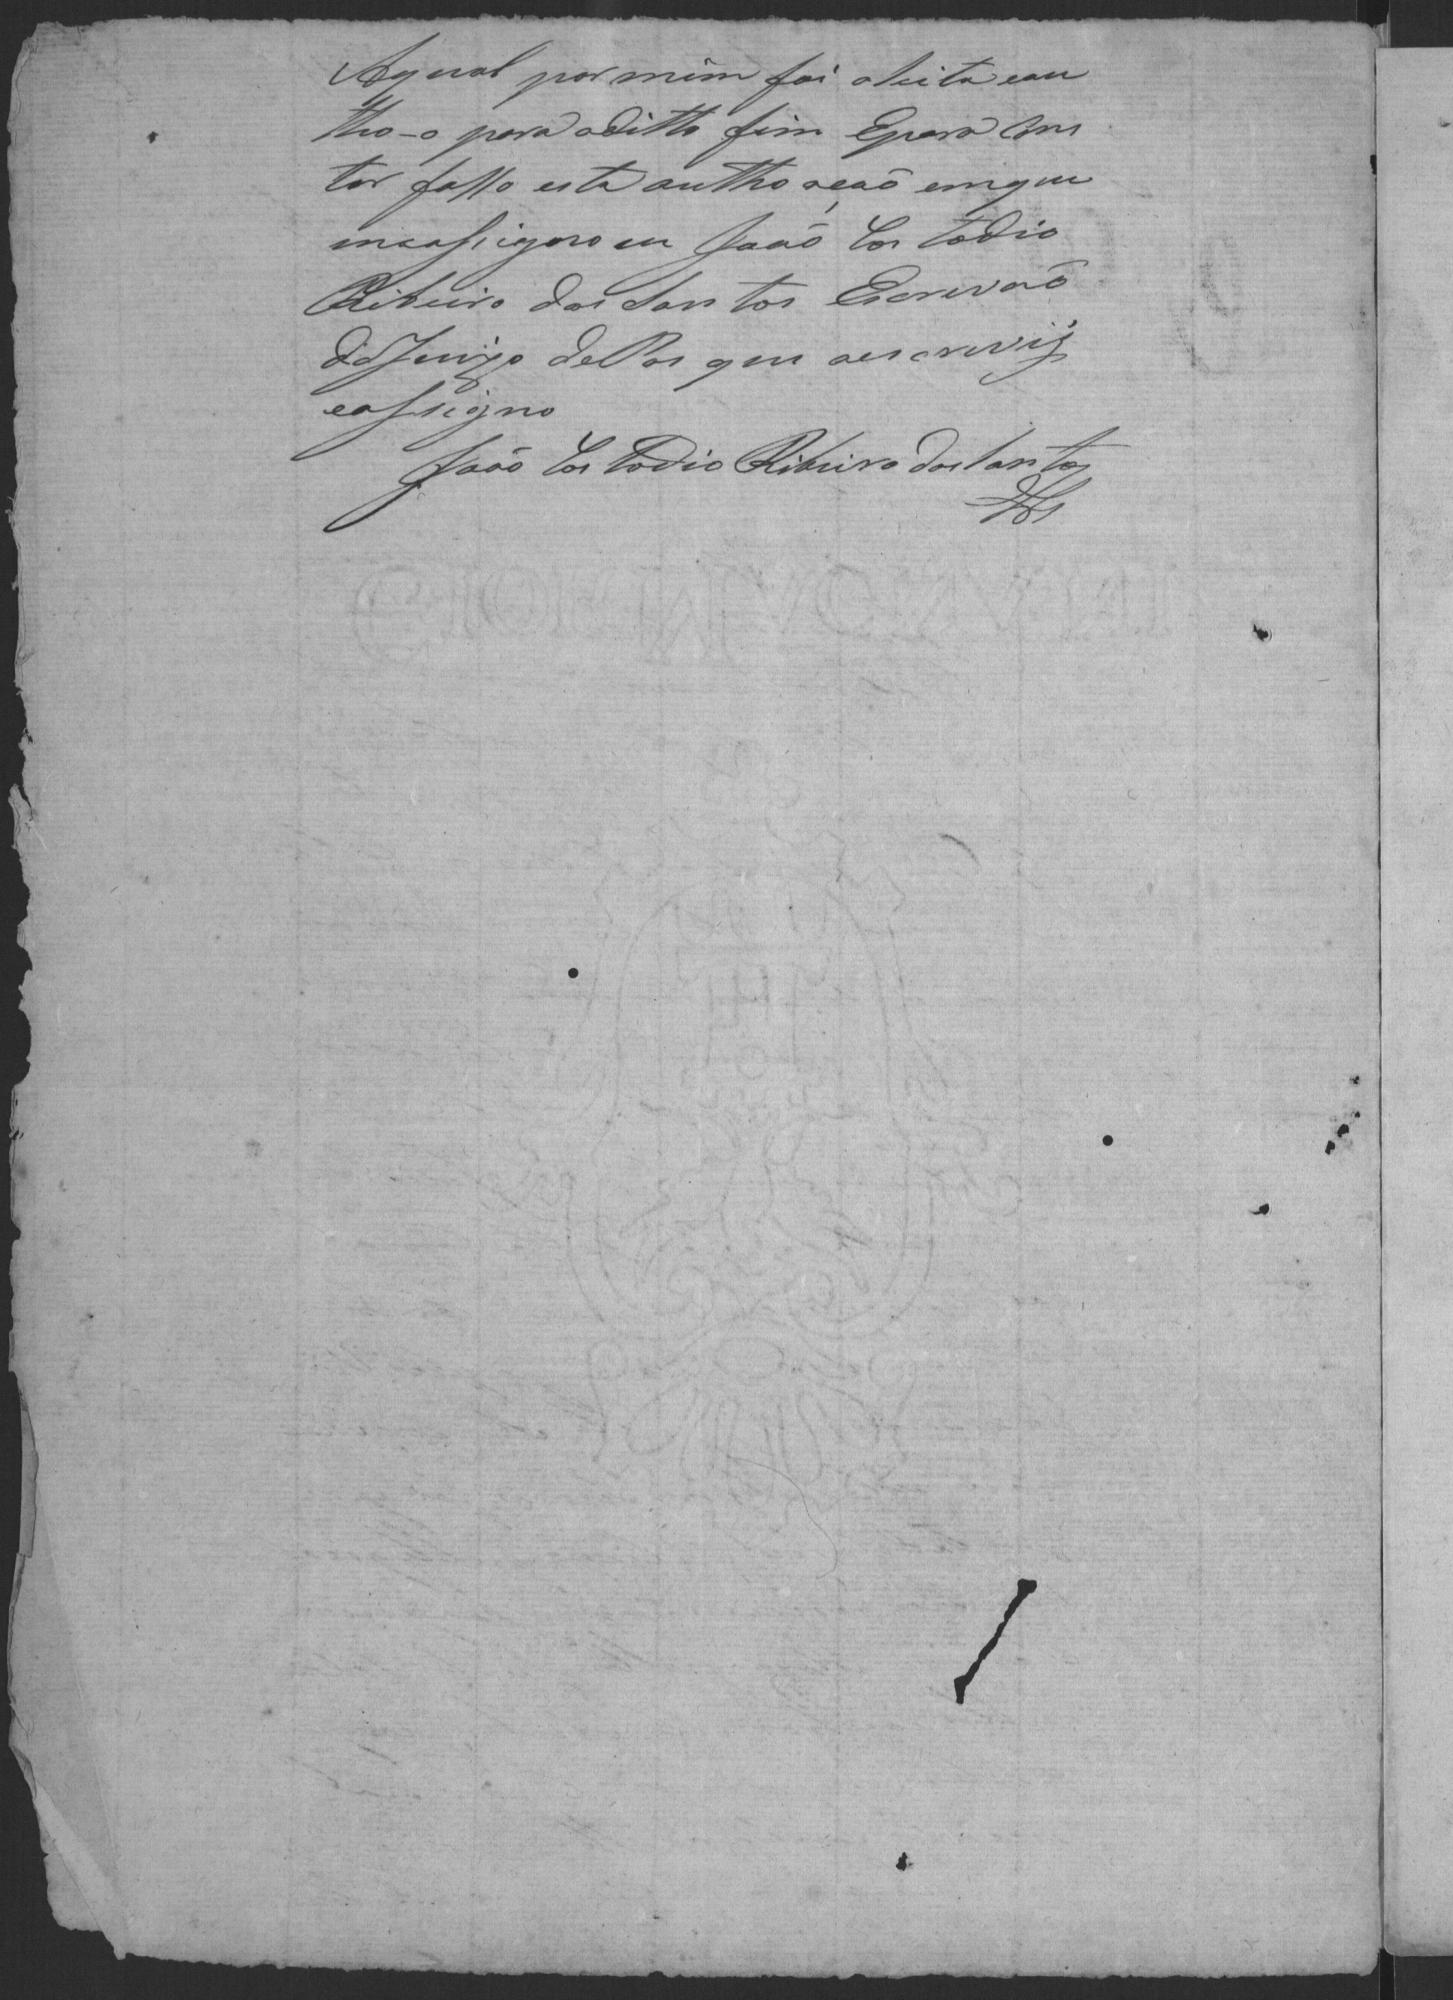 Aqual por mim foi aleita eau
tho-o para oditto fim Epara Cons
tar fasso esta authoação emque
measigno eu João Costodio
Ribeiro dos Santos Escrivão
do Juizo de Pas que aescrevij
easigno
João Costodio Ribeiro dos Santos